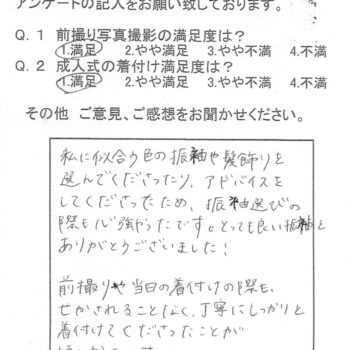 アンケートの記入をお願い致しております。
Q.1 前撮り写真撮影の満足度は?
1.満足 2.やや満足 3.やや不満 4.不満
Q.2 成人式の着付け満足度は?
1.満足 2.やや満足 3.やや不満 4.不満
その他 ご意見、ご感想をお聞かせください。
私に似合う色の振袖や髪飾りを
選んでくださったり、アドバイスを
してくださったため、振袖選びの
際も心強かったです。とっても良い振袖を
ありがとうございました!
前撮りや当日の着付けの際も、
せかされることなく、丁寧にしっかりと
着付けてくださったことが